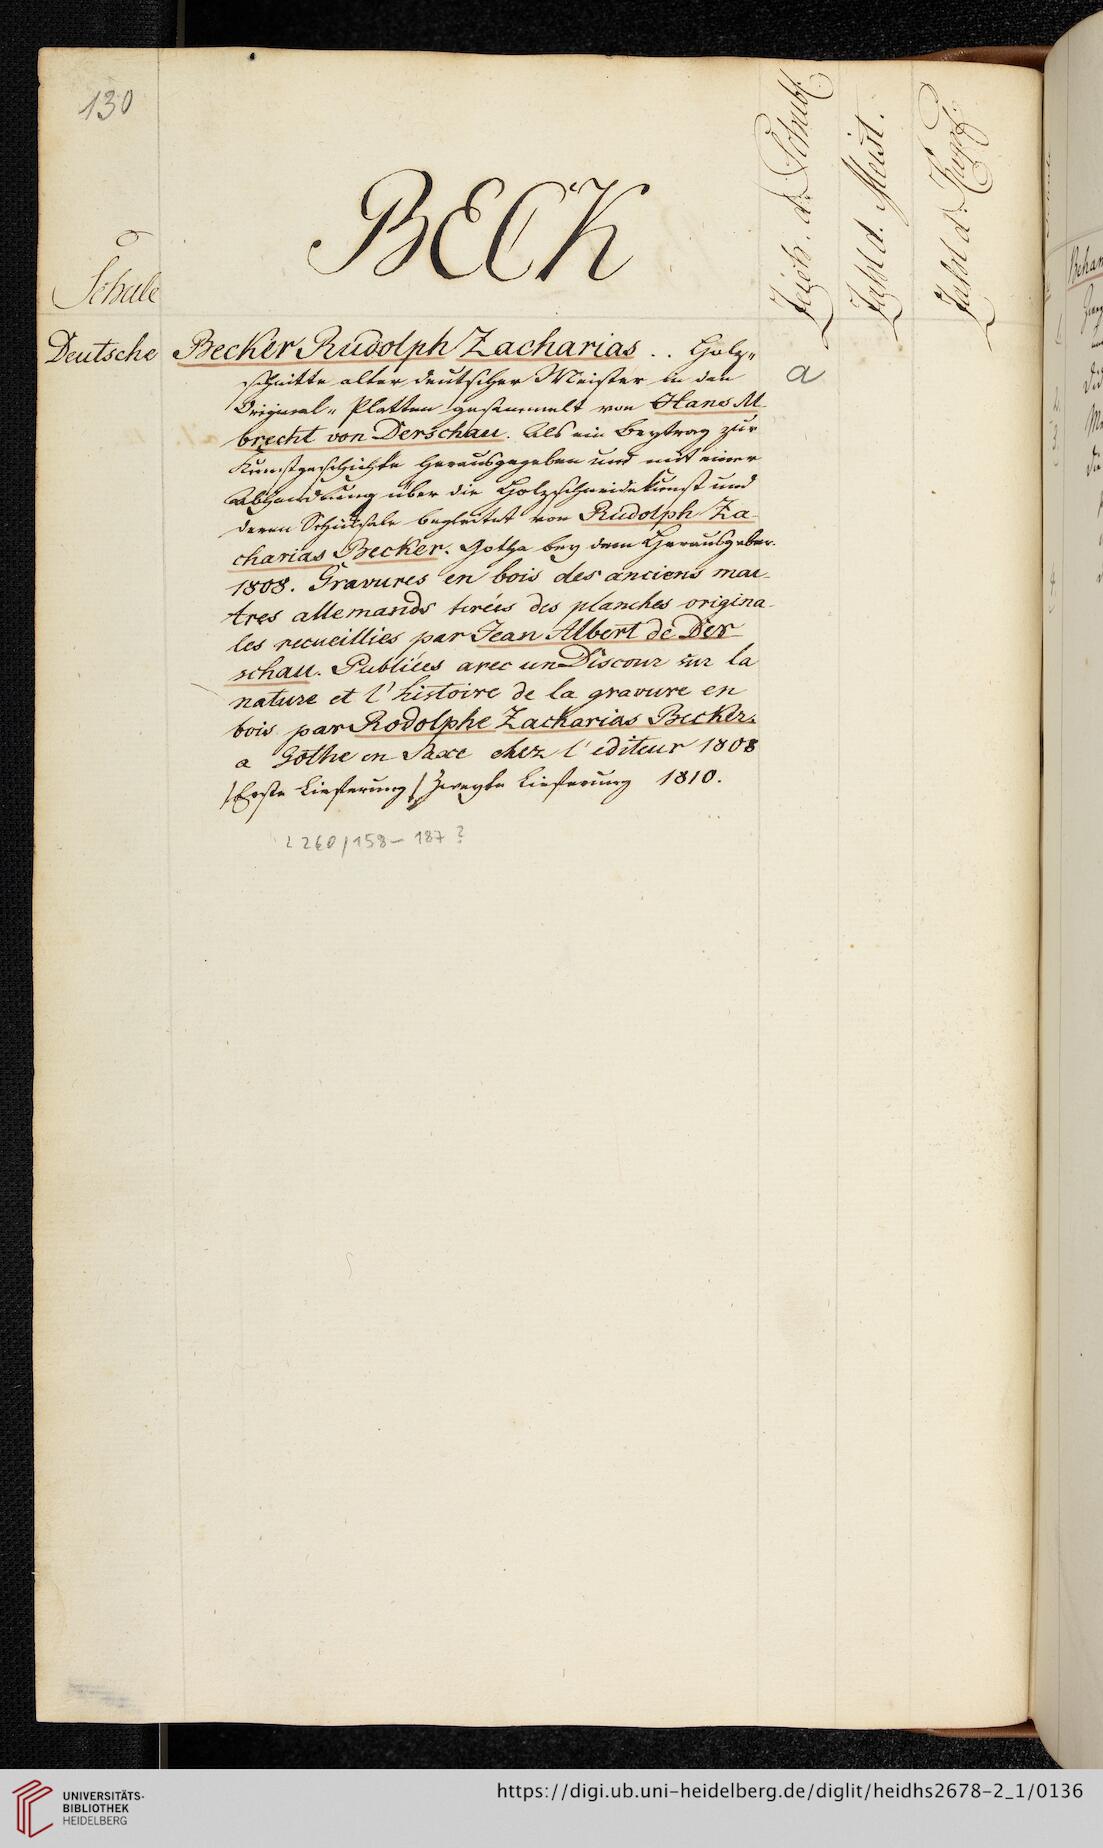 130
BECK
Schule
Zeich. d. Schubl.
Zahl d. Meist.
Zahl d. Kupf.
Deutsche Becker Rudolph Zacharias . . Holz„
schnitte alter deutscher Meister in den
Original„ Platten gesammelt von Hans Al
brecht von Derschau. Als ein Beytrag zur
Kunstgeschichte herausgegeben und mit einer
Abhandlung über die Holzschneidekunst und
deren Schicksale begleitet von Rudolph Za
charias Becker. Gotha bey dem Herausgeber.
1808. Gravures en bois des anciens mai
tres allemands tirées des planches origina
les recueillies par Jean Albert de Der
schau. Publiées avec un Discour sur la
nature et l'histoire de la gravure en
bois par Rodolphe Zacharias Becker.
a Gothe en Saxe chez l'editeur 1808
/Erste Lieferung/ Zweyte Lieferung 1810.
a
2260/158–187?
UNIVERSITÄTS-
BIBLIOTHEK
HEIDELBERG
https://digi.ub.uni-heidelberg.de/diglit/heidhs2678-2_1/0136